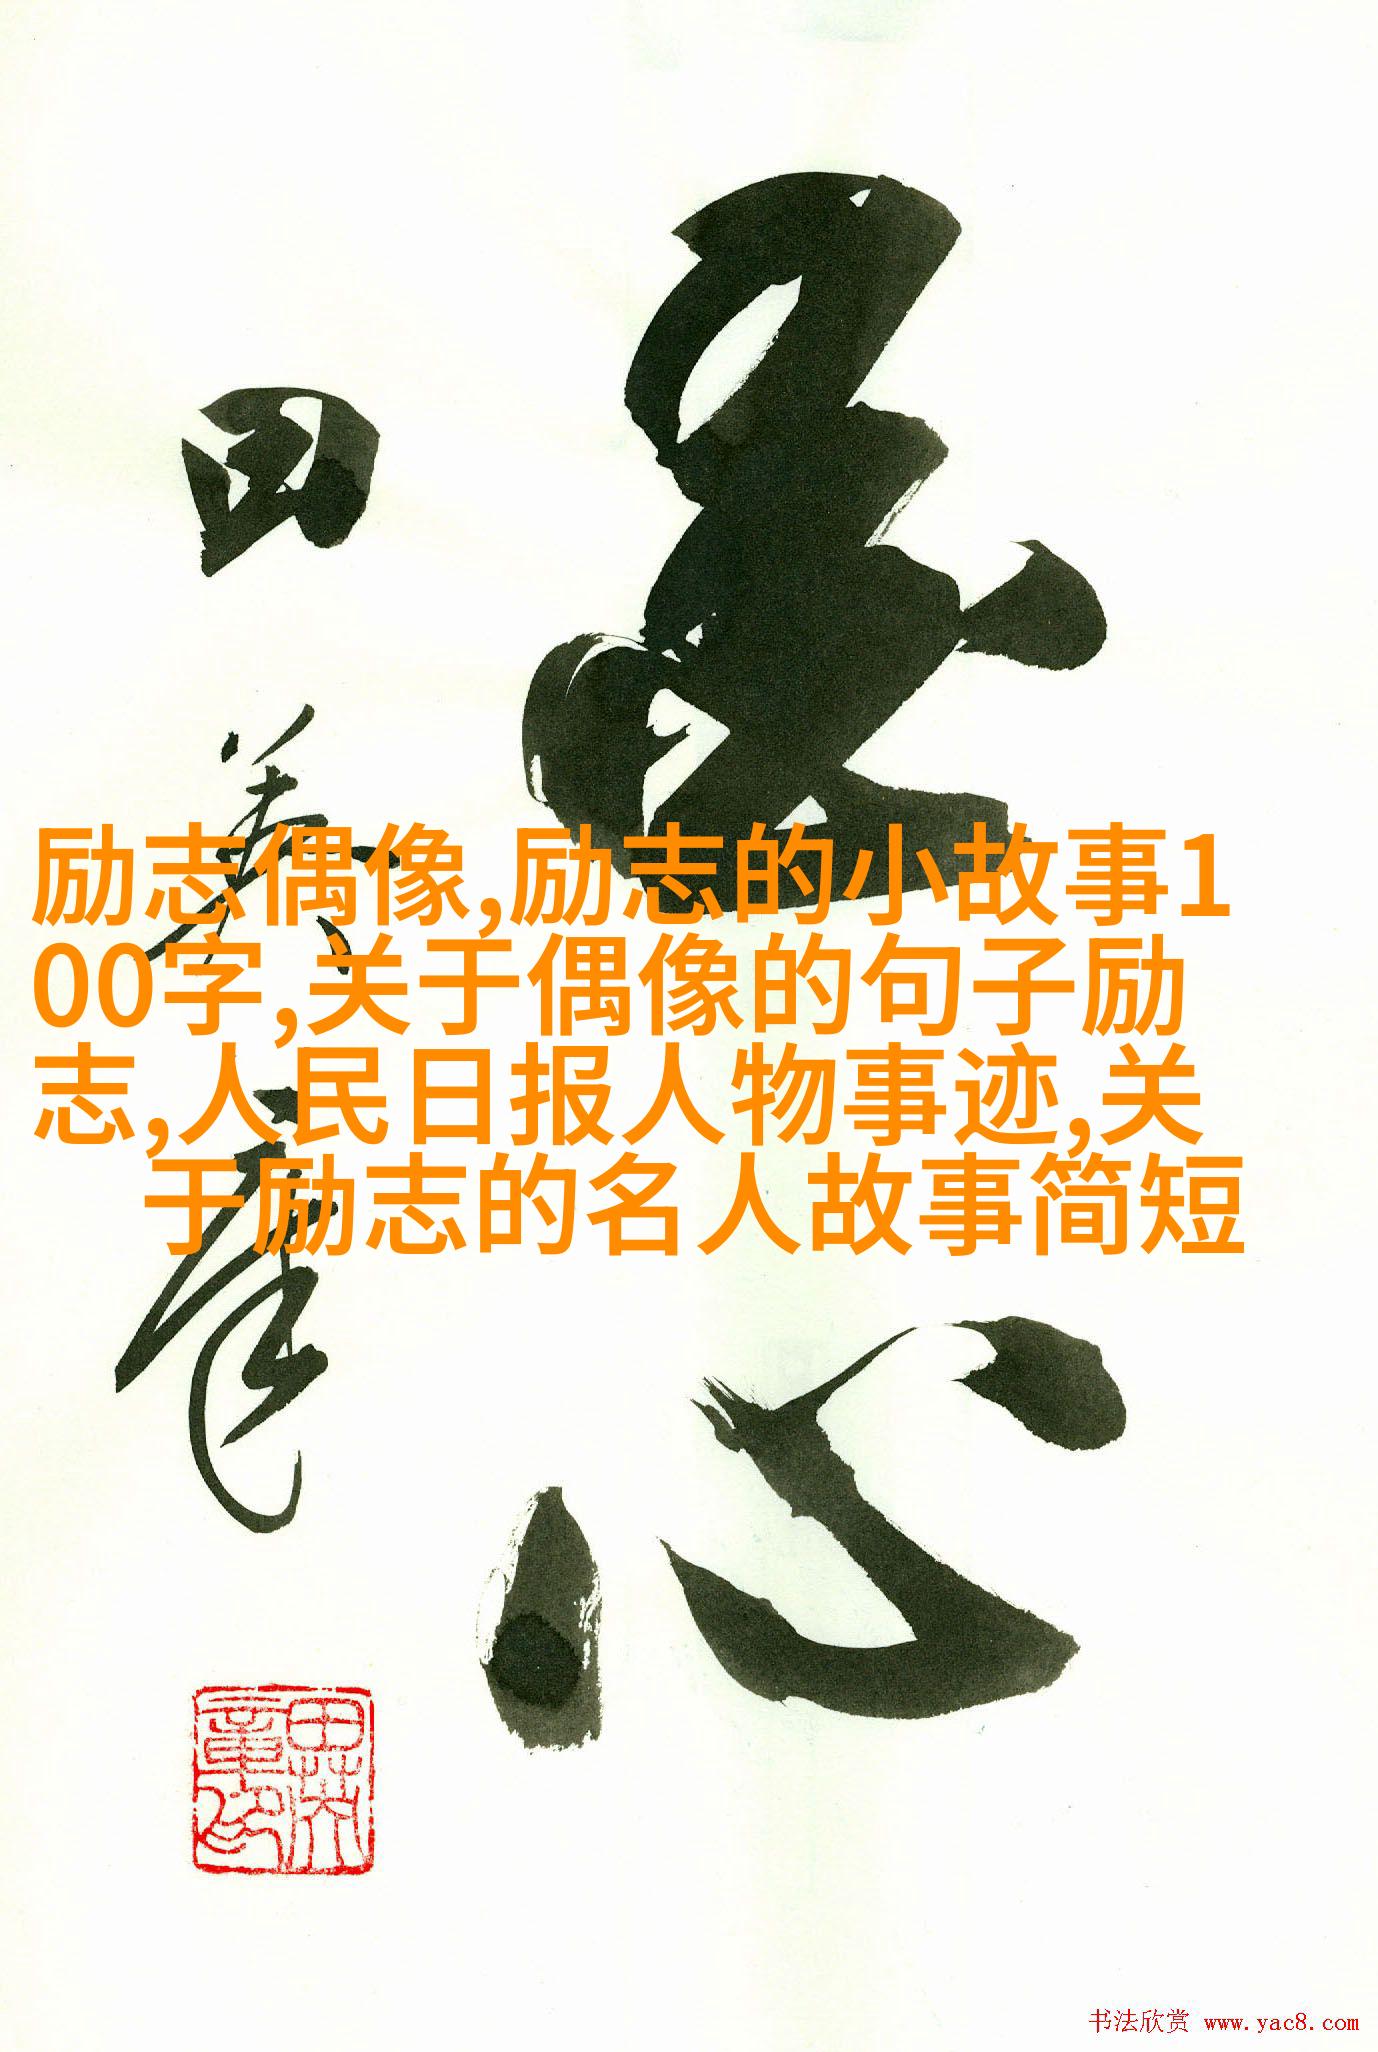 励志偶像,励志的小故事1
00字,关于偶像的句子励
志,人民日报人物事迹,关
于励志的名人故事简短
心
田
英
章
书法欣赏 www.yac8.com